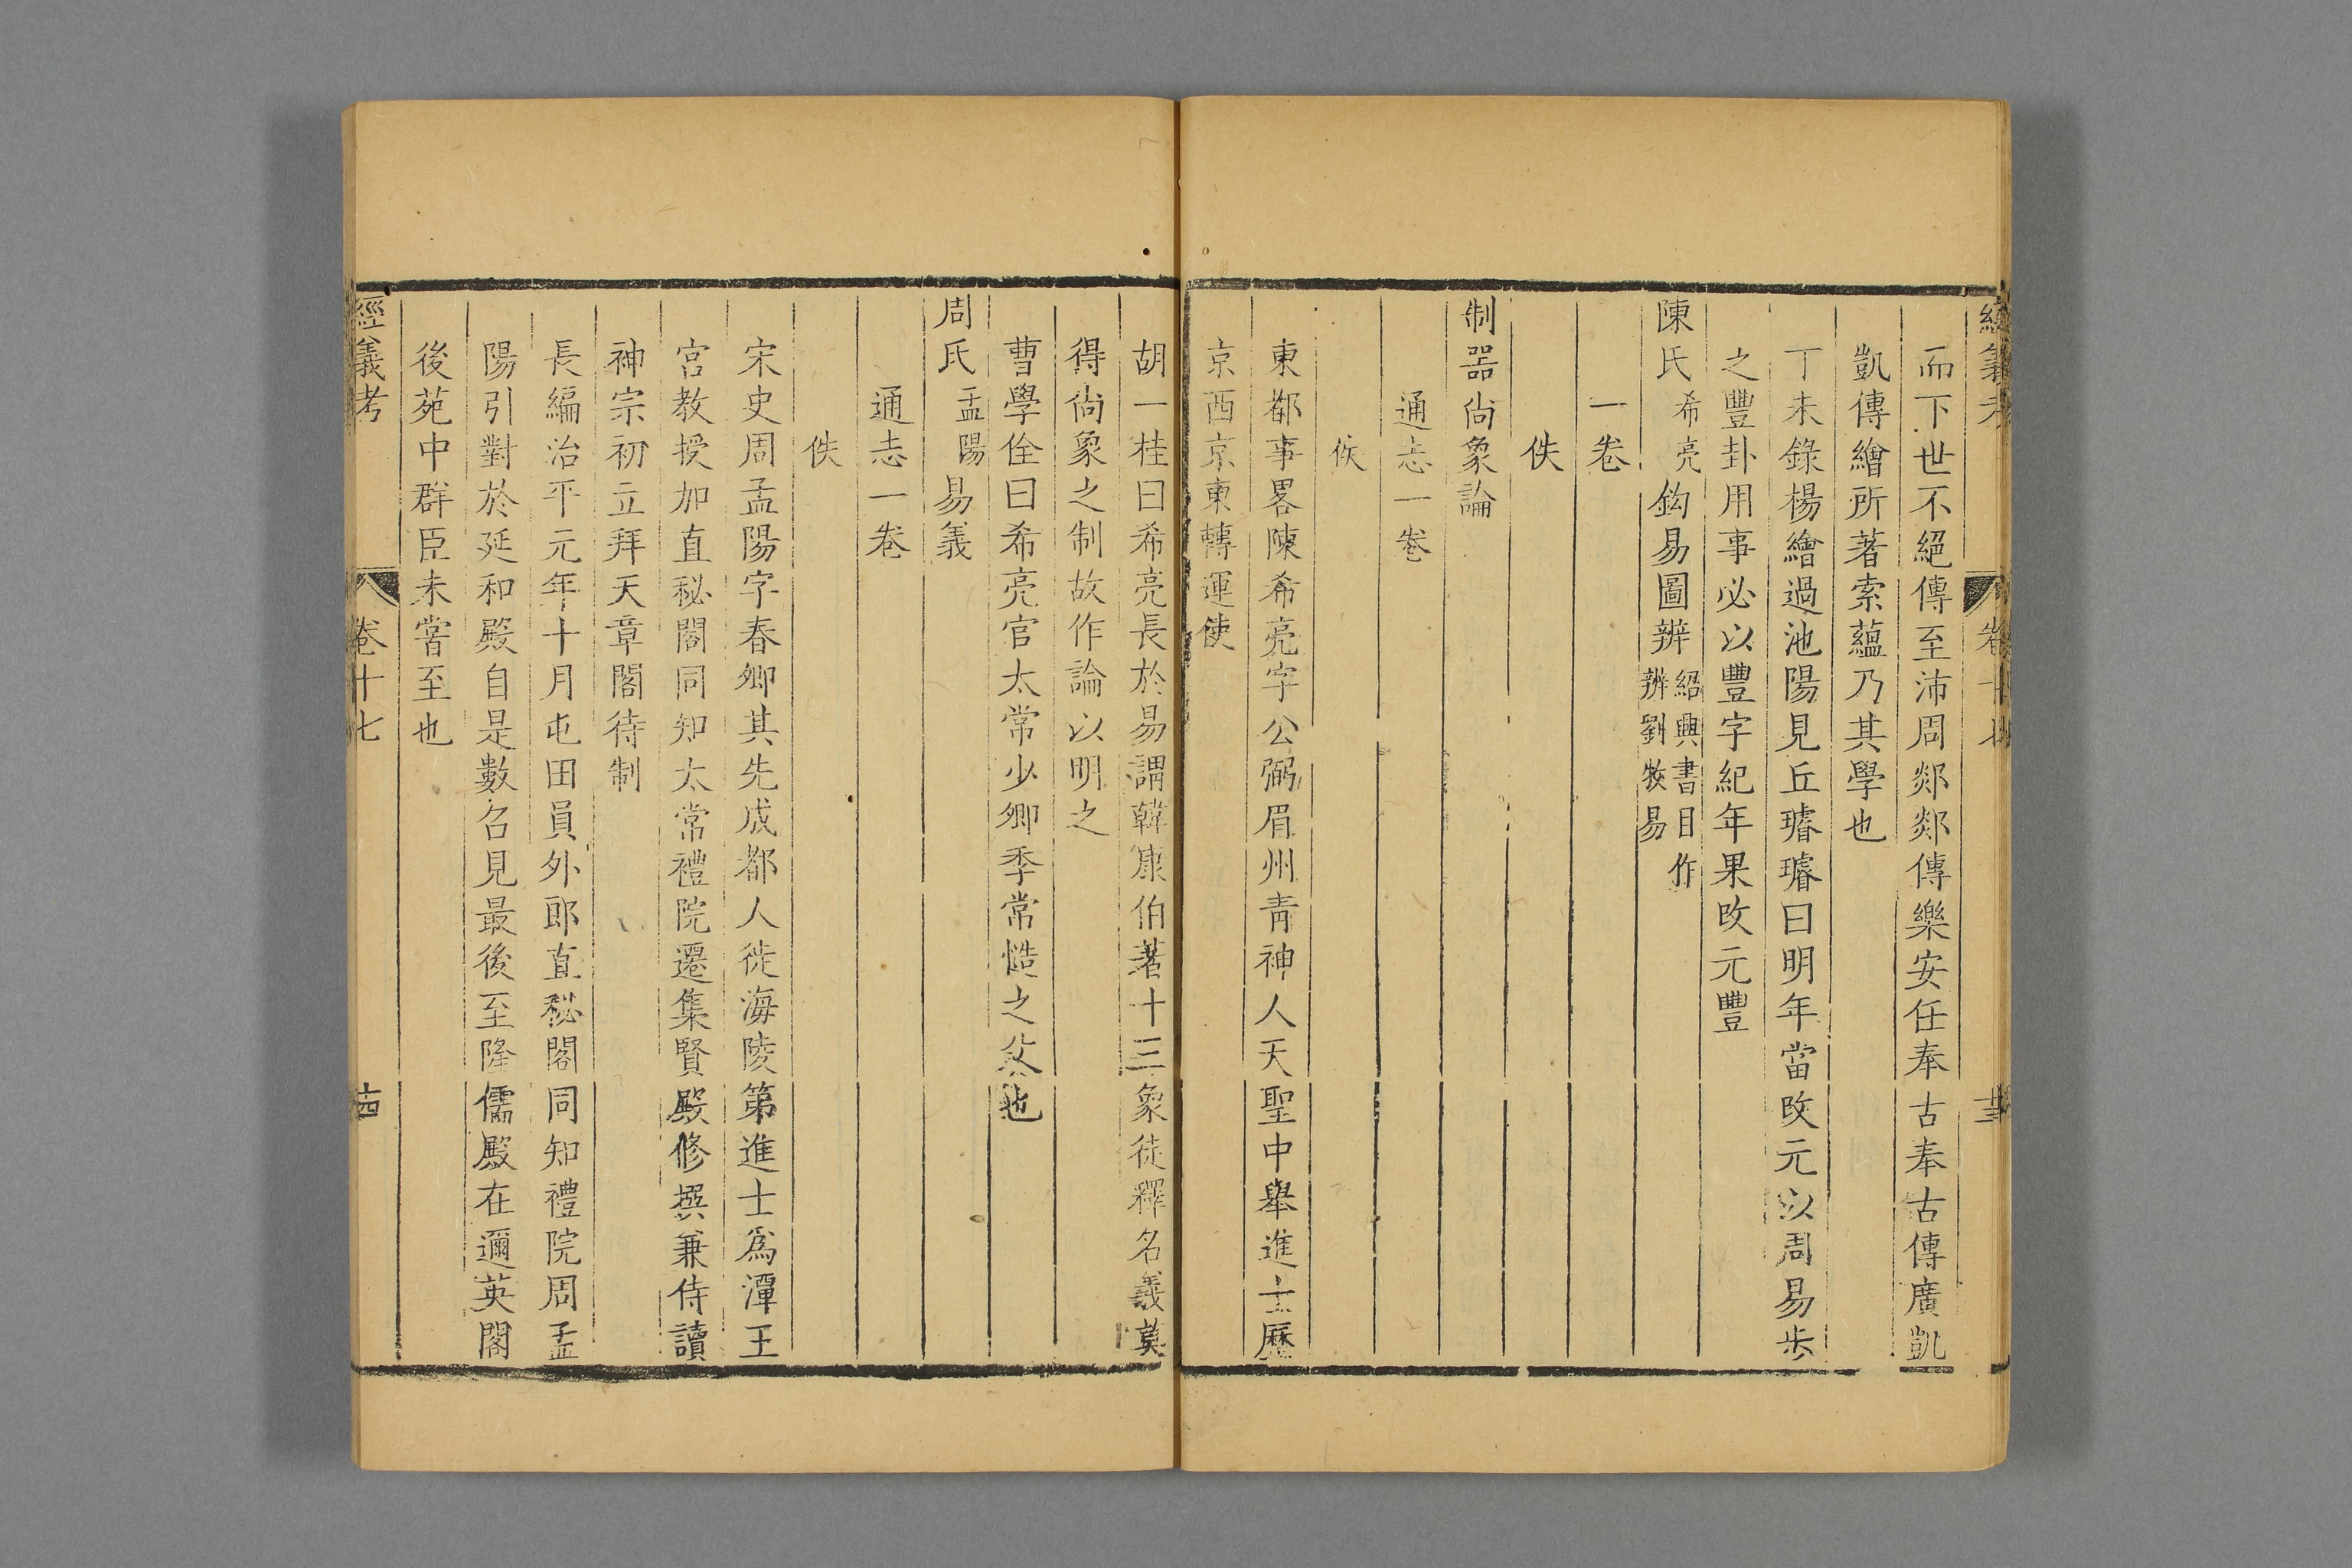 而下世不絕傳至沛周郯郯傳樂安任奉古奉古傳廣凱
凱傳繪所著索蘊乃其學也
丁未錄楊繪過池陽見丘璿璿曰明年當改元以周易步
之豐卦用事必以豐字紀年果改元豐
陳氏希亮鈎易圖辨紹興書目作辨劉牧易
一卷
佚
制器尙象論
通志一卷
佚
東都事畧陳希亮字公弼眉州靑神人天聖中舉進士歷
京西京東轉運使
胡一桂曰希亮長於易謂韓康伯著十三象徒釋名義莫
得尙象之制故作論以明之
曹學佺曰希亮官太常少卿季常慥之父也
周氏孟陽易義
通志一卷
佚
宋史周孟陽字春卿其先成都人徙海陵第進士爲潭王
宮教授加直秘閣同知太常禮院遷集賢殿修撰兼侍讀
神宗初立拜天章閣待制
長編治平元年十月屯田員外郎直秘閣同知禮院周孟
陽引對於延和殿自是數召見最後至隆儒殿在邇英閣
後苑中群臣未嘗至也
經義考 卷十七 十四